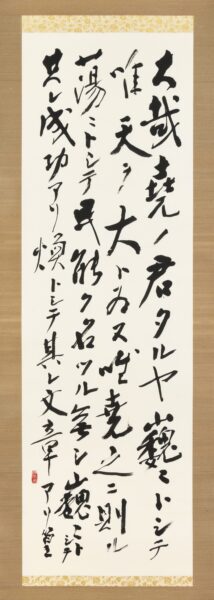 大哉堯ノ君タルヤ巍〻トシテ
唯天ヲ大ト為ス唯堯之ニ則ル
蕩〻トシテ民能ク名ツル無シ巍〻トシテ
其レ成功アリ煥トシテ其レ文章アリ